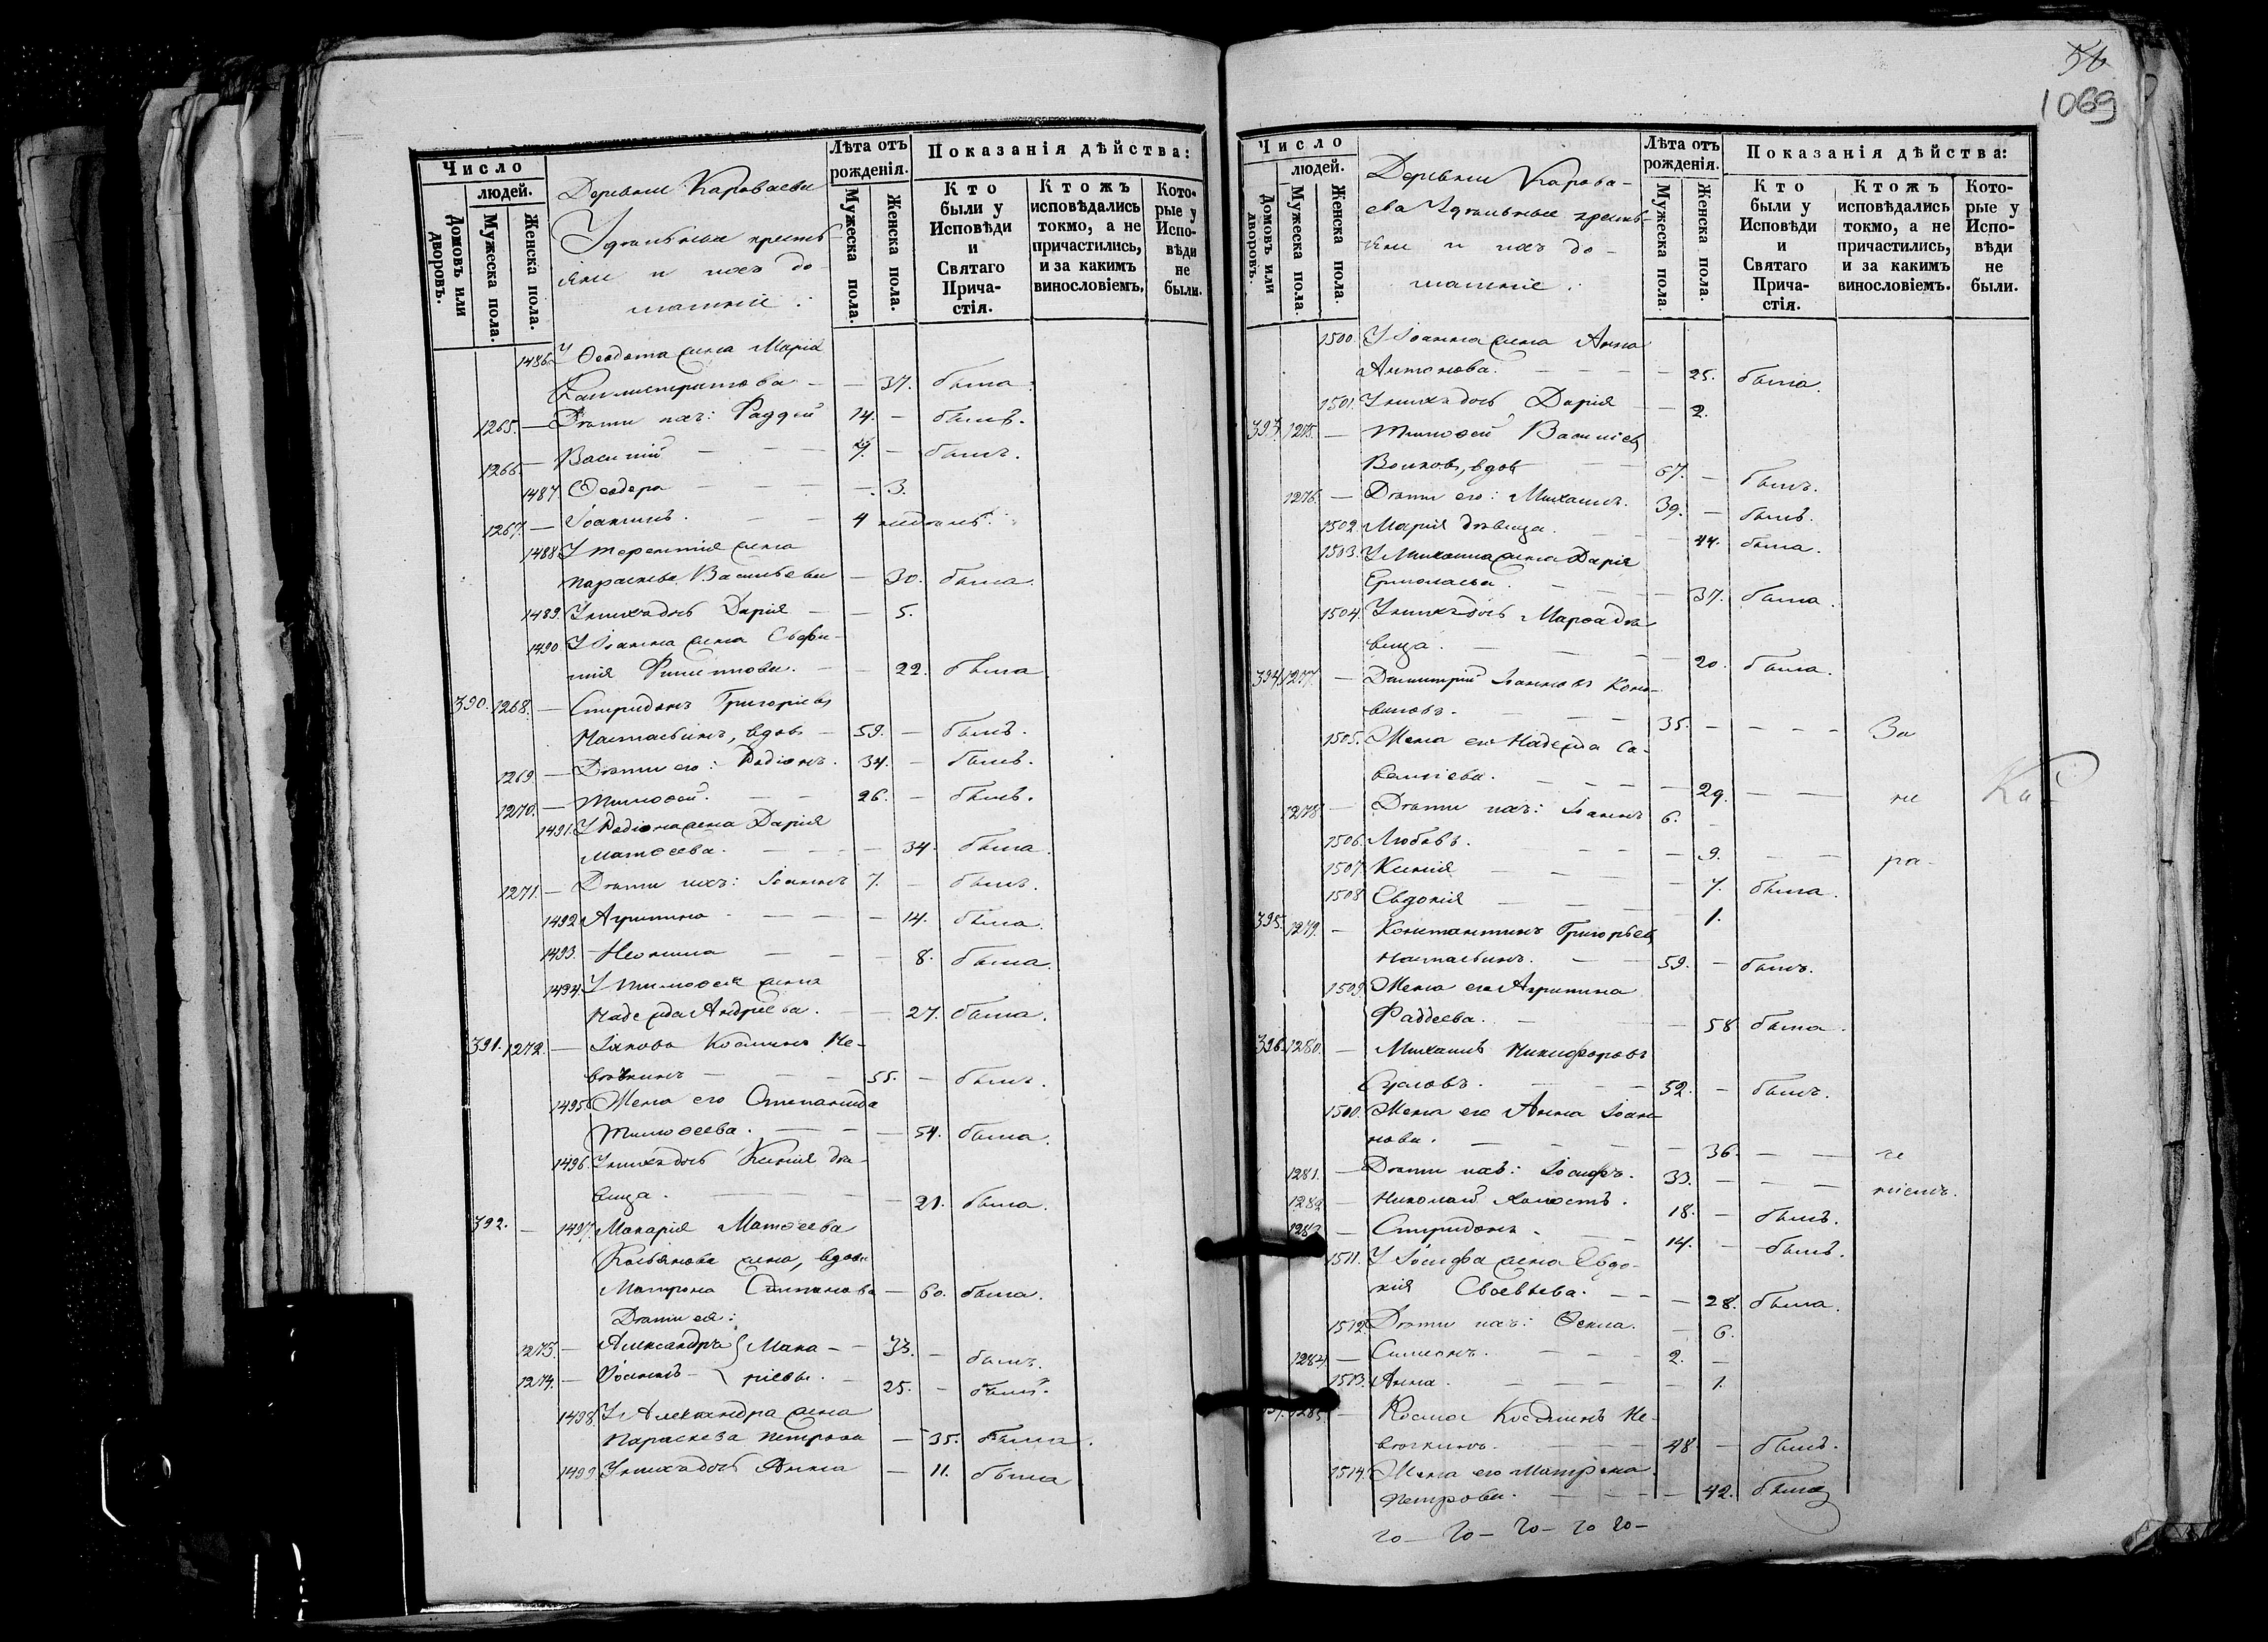 56
1069
Число
людей.
Домовъ или дворовъ.
Мужеска пола.
Женска пола.
Деревни Караваева
Удѣльные кресть-
яне и ихъ до-
машніе:
Лѣта отъ рожденія.
Мужеска пола.
Женска пола.
Показанія дѣйства:
Кто были у Исповѣди и Святаго Причастія.
Ктожъ исповѣдались токмо, а не причастились, и за какимъ винословіемъ.
Которые у Исповѣди не были.
1486. У Ѳеодота жена Марія
Каллистратова — — 37. была.
1265. — Дѣти ихъ: Фаддей 14. — былъ.
1266. — Василій — — 9. — былъ.
1487 Ѳеодора — — — 3.
1267. — Іоаннъ. — 4 недѣль.
1488 У Терентія жена
Параскева Васильева — 30. была.
1489. У нихъ дочь Дарія — — 5.
1490 У Іоанна жена Евфи-
мія Филиппова. — — 22. была
390. 1268. — Спиридонъ Григорьевъ
Настасьинъ, вдовъ — 59. — былъ.
1269 — Дѣти его: Родіонъ. 34. — былъ.
1270. — Тимоѳей. — — 26. — былъ.
1491. У Родіона жена Дарія
Матѳеева. — — — 34. была.
1271. — Дѣти ихъ: Іоаннъ 7. — былъ.
1492 Агрипина — — — 14. была.
1493. Неонила — — — 8. была.
1494. У Тимоѳея жена
Надежда Андреева. — — 27. была.
391. 1272. — Іаковъ Козминъ Не-
— — 55. — былъ.
1495 Жена его Степанида
Тимоѳеева. — — — 54. была.
1496. У нихъ дочь Ксенія дѣ-
вица. — — — 21. была.
392. — 1497. Макарія Матѳеева
жена, вдова
Матрона Степанова — 60. была.
Дѣти ея:
1273. — Александръ } Мака- — 33. — былъ.
1274. — Іоаннъ — } ріевы. — 25. — былъ.
1498. У Александра жена
Параскева Петрова — 35. была.
1499 У нихъ дочь Анна — 11. была
Число
людей.
Домовъ или дворовъ.
Мужеска пола.
Женска пола.
Деревни Карава-
ева Удѣльные кресть-
яне и ихъ до-
машніе:
Лѣта отъ рожденія.
Мужеска пола.
Женска пола.
Показанія дѣйства:
Кто были у Исповѣди и Святаго Причастія.
Ктожъ исповѣдались токмо, а не причастились, и за какимъ винословіемъ.
Которые у Исповѣди не были.
1500. У Іоанна жена Анна
Антонова. — — — 25. была.
1501. У нихъ дочь Дарія — 2.
393. 1275. — Тимоѳей Васильевъ
Волковъ, вдовъ — 67. — былъ.
1276. — Дѣти его: Михаилъ. 39. — былъ.
1502. Марія дѣвица. — 44. была.
1503. У Михаила жена Дарія
Ермолаева. — — 37. была.
1504. У нихъ дочь Марѳа дѣ-
вица. — — — 20. была.
394. 1277. — Димитрій Іоанновъ Коно-
валовъ. — — 35. — — — За
1505. Жена его Надежда Са-
вельева. — — — 29. — — не
1278 — Дѣти ихъ: Іоаннъ 6. —
1506. Любовь. — — — 9. — — ра-
1507. Ксенія — — — 7. была.
1508 Евдокія — — — 1.
395. 1279. — Константинъ Григорьевъ
Настасьинъ. — — 59. — былъ.
1509. Жена его Агрипина
Фаддеева. — — 58 была.
396. 1280. — Михаилъ Никифоровъ
— — 52. — былъ.
1510. Жена его Анна Іоан-
нова. — — — 36. — — че
1281. — Дѣти ихъ: Іосифъ. 33. — — — ніемъ.
1282 — Николай холостъ. 18. — былъ.
1283 — Спиридонъ. — 14. — былъ.
1511. У Іосифа жена Евдо-
кія Евсевьева. — — — 28. была.
1512. Дѣти ихъ: Ѳекла. — 6.
1284. — Симеонъ. — — 2. —
1513. Анна. — — — 1.
1285. — Косма Косминъ Не-
— — 48. — былъ.
1514. Жена его Матрона
Петрова. — — — 42. была